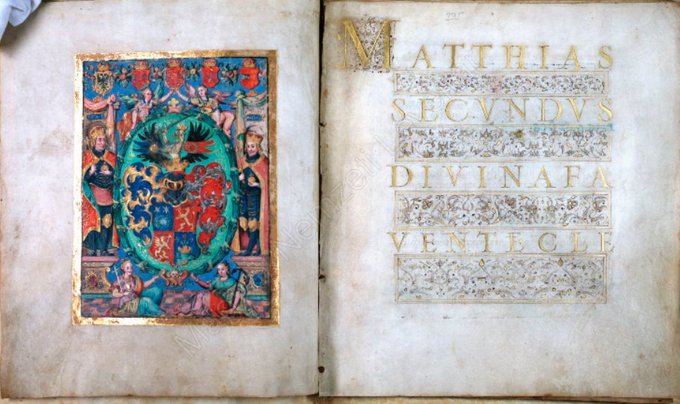 MATTHIAS
SECVNDVS
DIVINAFA
VENTECLE